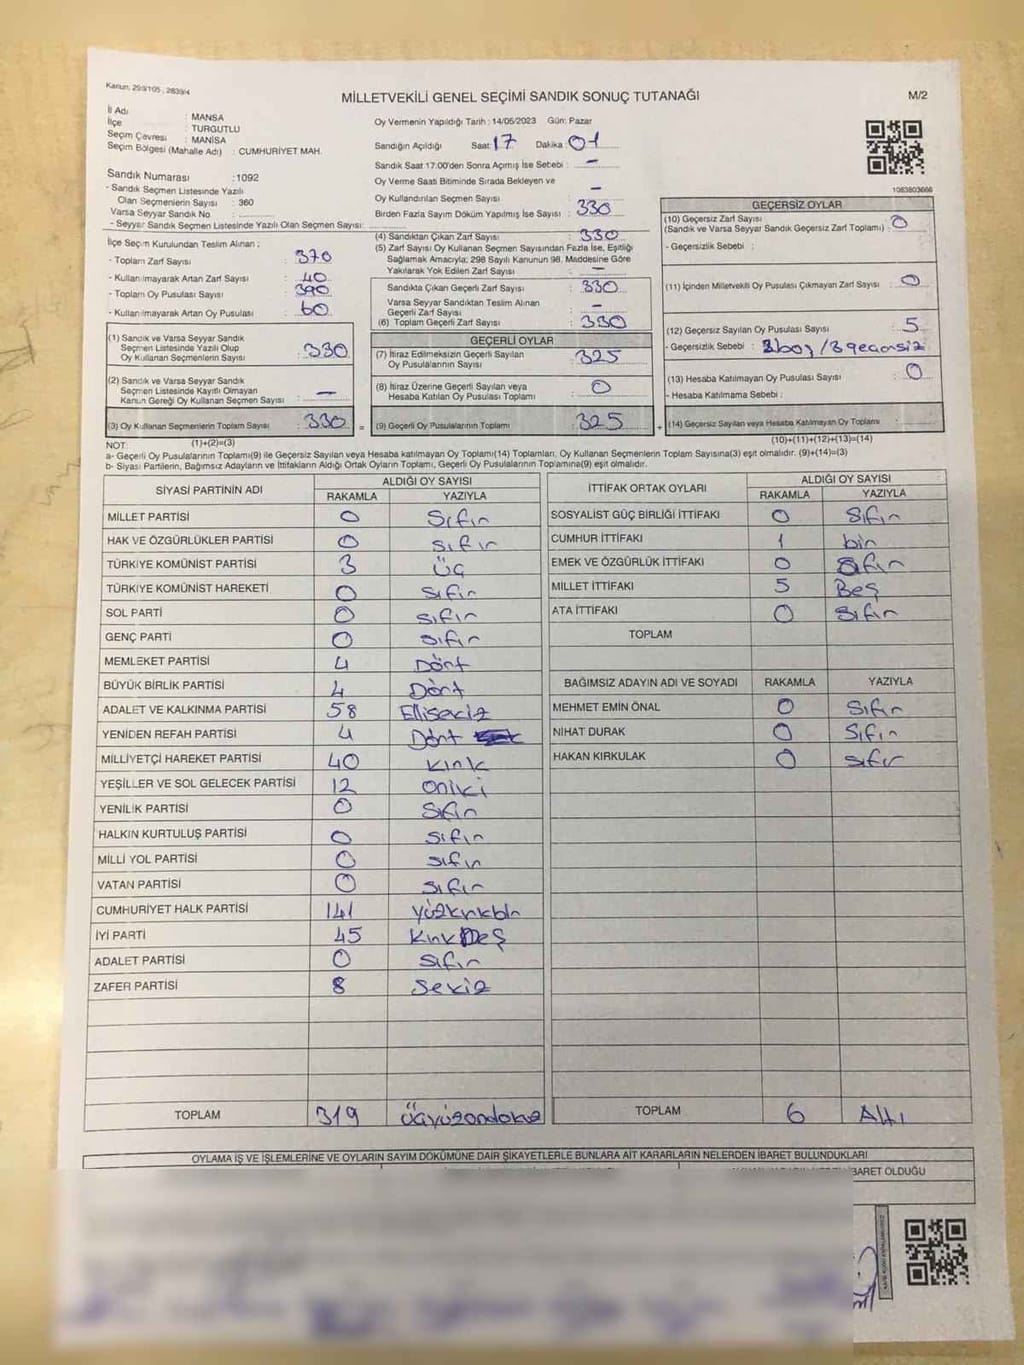 Kanun: 298/105, 2839/4
MİLLETVEKİLİ GENEL SEÇİMİ SANDIK SONUÇ TUTANAĞI
M/2
İl Adı : MANSA
İlçe : TURGUTLU
Seçim Çevresi : MANİSA
Seçim Bölgesi (Mahalle Adı) : CUMHURİYET MAH.
Oy Vermenin Yapıldığı Tarih : 14/05/2023 Gün: Pazar
Sandığın Açıldığı Saat: 17 Dakika: 01
Sandık Saat 17:00'den Sonra Açımış İse Sebebi : -
Oy Verme Saati Bitiminde Sırada Bekleyen ve
Oy Kullandırılan Seçmen Sayısı : -
Birden Fazla Sayım Döküm Yapılmış İse Sayısı : 330
Sandık Numarası : 1092
- Sandık Seçmen Listesinde Yazılı
Olan Seçmenlerin Sayısı : 360
Varsa Seyyar Sandık No :
- Seyyar Sandık Seçmen Listesinde Yazılı Olan Seçmen Sayısı:
İlçe Seçim Kurulundan Teslim Alınan ;
- Toplam Zarf Sayısı : 370
- Kullanılmayarak Artan Zarf Sayısı : 40
- Toplam Oy Pusulası Sayısı : 390
- Kullanılmayarak Artan Oy Pusulası : 60
(1) Sandık ve Varsa Seyyar Sandık
Seçmen Listesinde Yazılı Olup
Oy Kullanan Seçmenlerin Sayısı : 330
(2) Sandık ve Varsa Seyyar Sandık
Seçmen Listesinde Kayıtlı Olmayan
Kanun Gereği Oy Kullanan Seçmen Sayısı : -
(3) Oy Kullanan Seçmenlerin Toplam Sayısı : 330 =
(4) Sandıktan Çıkan Zarf Sayısı : 330
(5) Zarf Sayısı Oy Kullanan Seçmen Sayısından Fazla İse, Eşitliği
Sağlamak Amacıyla; 298 Sayılı Kanunun 98. Maddesine Göre
Yakılarak Yok Edilen Zarf Sayısı : -
Sandıkta Çıkan Geçerli Zarf Sayısı : 330
Varsa Seyyar Sandıktan Teslim Alınan
Geçerli Zarf Sayısı : -
(6) Toplam Geçerli Zarf Sayısı : 330
GEÇERLİ OYLAR
(7) İtiraz Edilmeksizin Geçerli Sayılan
Oy Pusulalarının Sayısı : 325
(8) İtiraz Üzerine Geçerli Sayılan veya
Hesaba Katılan Oy Pusulası Toplamı : 0
(9) Geçerli Oy Pusulalarının Toplamı : 325 +
1083803666
GEÇERSİZ OYLAR
(10) Geçersiz Zarf Sayısı
(Sandık ve Varsa Seyyar Sandık Geçersiz Zarf Toplamı) : 0
- Geçersizlik Sebebi :
(11) İçinden Milletvekili Oy Pusulası Çıkmayan Zarf Sayısı : 0
(12) Geçersiz Sayılan Oy Pusulası Sayısı : 5
- Geçersizlik Sebebi : boş / 3 geçersiz
(13) Hesaba Katılmayan Oy Pusulası Sayısı : 0
- Hesaba Katılmama Sebebi :
(14) Geçersiz Sayılan veya Hesaba Katılmayan Oy Toplamı :
NOT: (1)+(2)=(3)
(10)+(11)+(12)+(13)=(14)
a- Geçerli Oy Pusulalarının Toplamı(9) ile Geçersiz Sayılan veya Hesaba katılmayan Oy Toplamı(14) Toplamları, Oy Kullanan Seçmenlerin Toplam Sayısına(3) eşit olmalıdır. (9)+(14)=(3)
b- Siyasi Partilerin, Bağımsız Adayların ve İttifakların Aldığı Ortak Oyların Toplamı, Geçerli Oy Pusulalarının Toplamına(9) eşit olmalıdır.
SİYASİ PARTİNİN ADI
ALDIĞI OY SAYISI
RAKAMLA YAZIYLA
MİLLET PARTİSİ 0 Sıfır
HAK VE ÖZGÜRLÜKLER PARTİSİ 0 sıfır
TÜRKİYE KOMÜNİST PARTİSİ 3 Üç
TÜRKİYE KOMÜNİST HAREKETİ 0 sıfır
SOL PARTİ 0 sıfır
GENÇ PARTİ 0 sıfır
MEMLEKET PARTİSİ 4 Dört
BÜYÜK BİRLİK PARTİSİ 4 Dört
ADALET VE KALKINMA PARTİSİ 58 Ellisekiz
YENİDEN REFAH PARTİSİ 4 Dört
MİLLİYETÇİ HAREKET PARTİSİ 40 Kırk
YEŞİLLER VE SOL GELECEK PARTİSİ 12 Oniki
YENİLİK PARTİSİ 0 Sıfır
HALKIN KURTULUŞ PARTİSİ 0 sıfır
MİLLİ YOL PARTİSİ 0 sıfır
VATAN PARTİSİ 0 sıfır
CUMHURİYET HALK PARTİSİ 141 yüzkırkbir
İYİ PARTİ 45 KırkBeş
ADALET PARTİSİ 0 Sıfır
ZAFER PARTİSİ 8 Sekiz
TOPLAM 319 Üçyüzondokuz
İTTİFAK ORTAK OYLARI
ALDIĞI OY SAYISI
RAKAMLA YAZIYLA
SOSYALİST GÜÇ BİRLİĞİ İTTİFAKI 0 Sıfır
CUMHUR İTTİFAKI 1 bir
EMEK VE ÖZGÜRLÜK İTTİFAKI 0 Sıfır
MİLLET İTTİFAKI 5 Beş
ATA İTTİFAKI 0 Sıfır
TOPLAM
BAĞIMSIZ ADAYIN ADI VE SOYADI RAKAMLA YAZIYLA
MEHMET EMİN ÖNAL 0 Sıfır
NİHAT DURAK 0 Sıfır
HAKAN KIRKULAK 0 sıfır
TOPLAM 6 Altı
OYLAMA İŞ VE İŞLEMLERİNE VE OYLARIN SAYIM DÖKÜMÜNE DAİR ŞİKAYETLERLE BUNLARA AİT KARARLARIN NELERDEN İBARET BULUNDUKLARI
BARET OLDUĞU